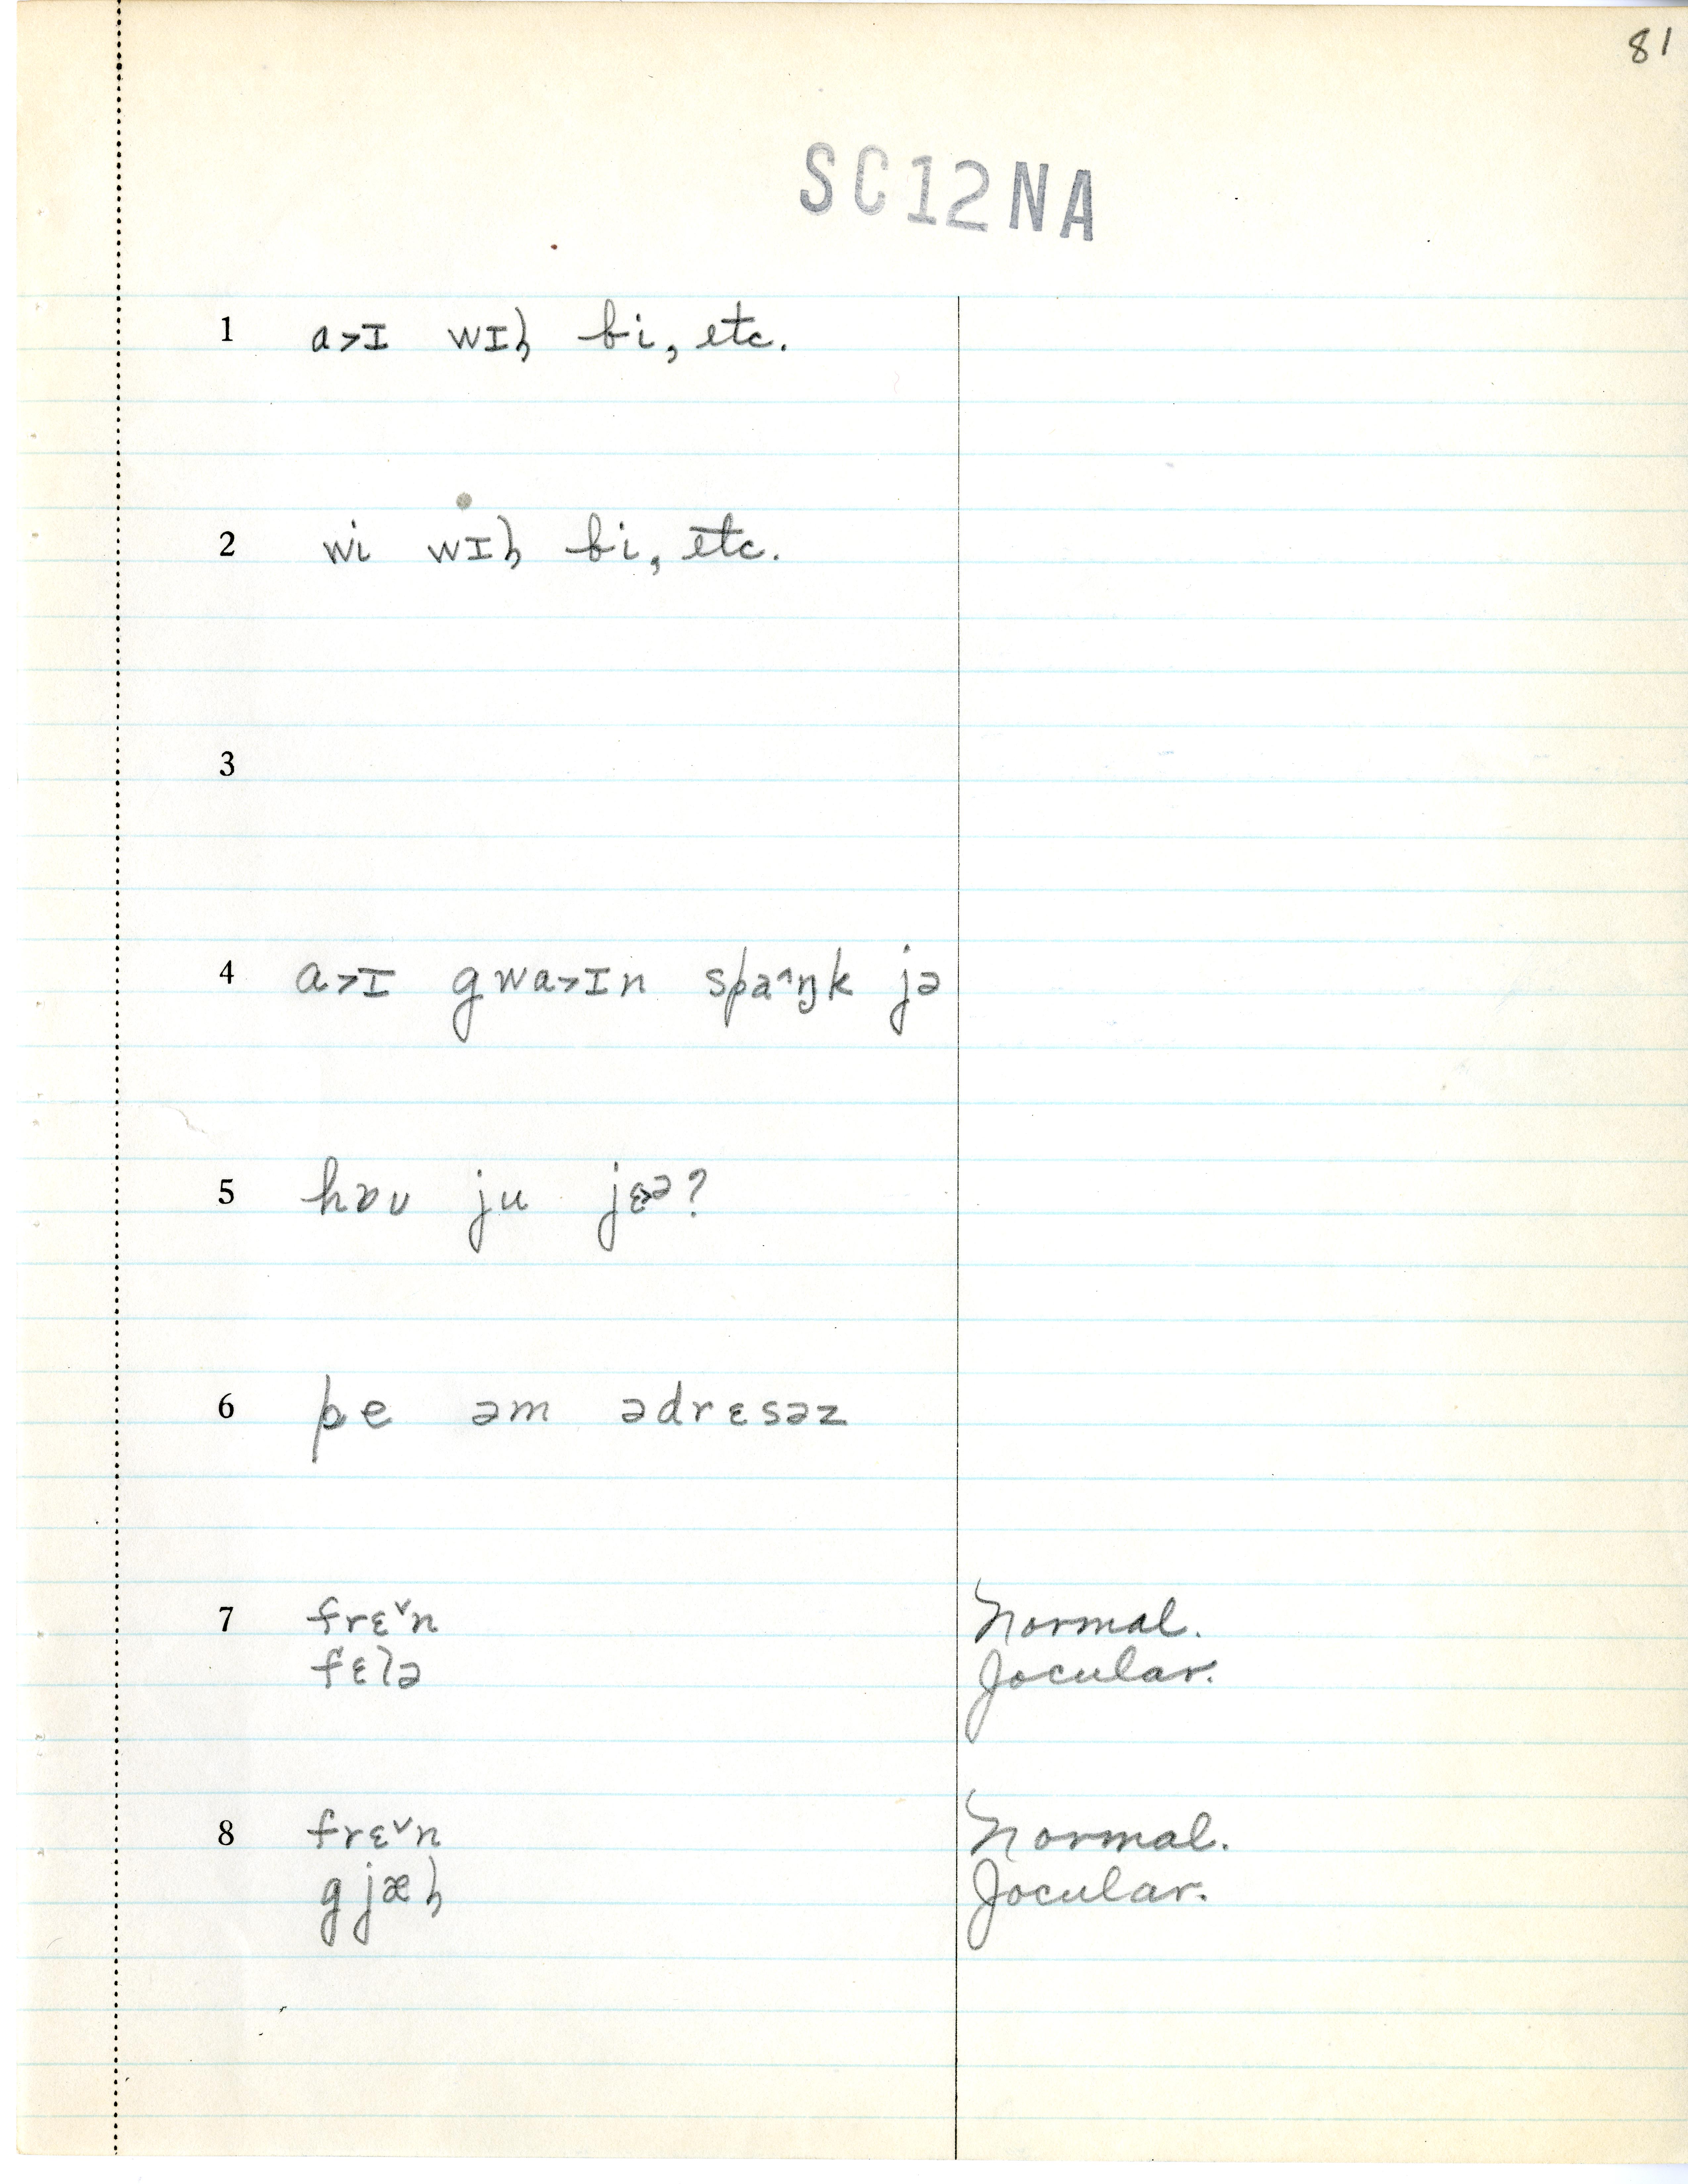 81
SC12NA
1 a>ɪ wɪɫ bi, etc.
2 wi wɪɫ bi, etc.
3
4 a>ɪ gwa>ɪn spa^ŋk jə
5 hɒu ju jɛ>ə?
6 pe əm ədrɛsəz
7 frɛ˅n Normal.
fɛlə Jocular.
8 frɛ˅n Normal.
gjæɫ Jocular.